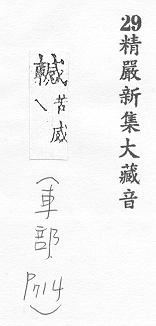 29精嚴新集大藏音
苦威
(車部, P.714)